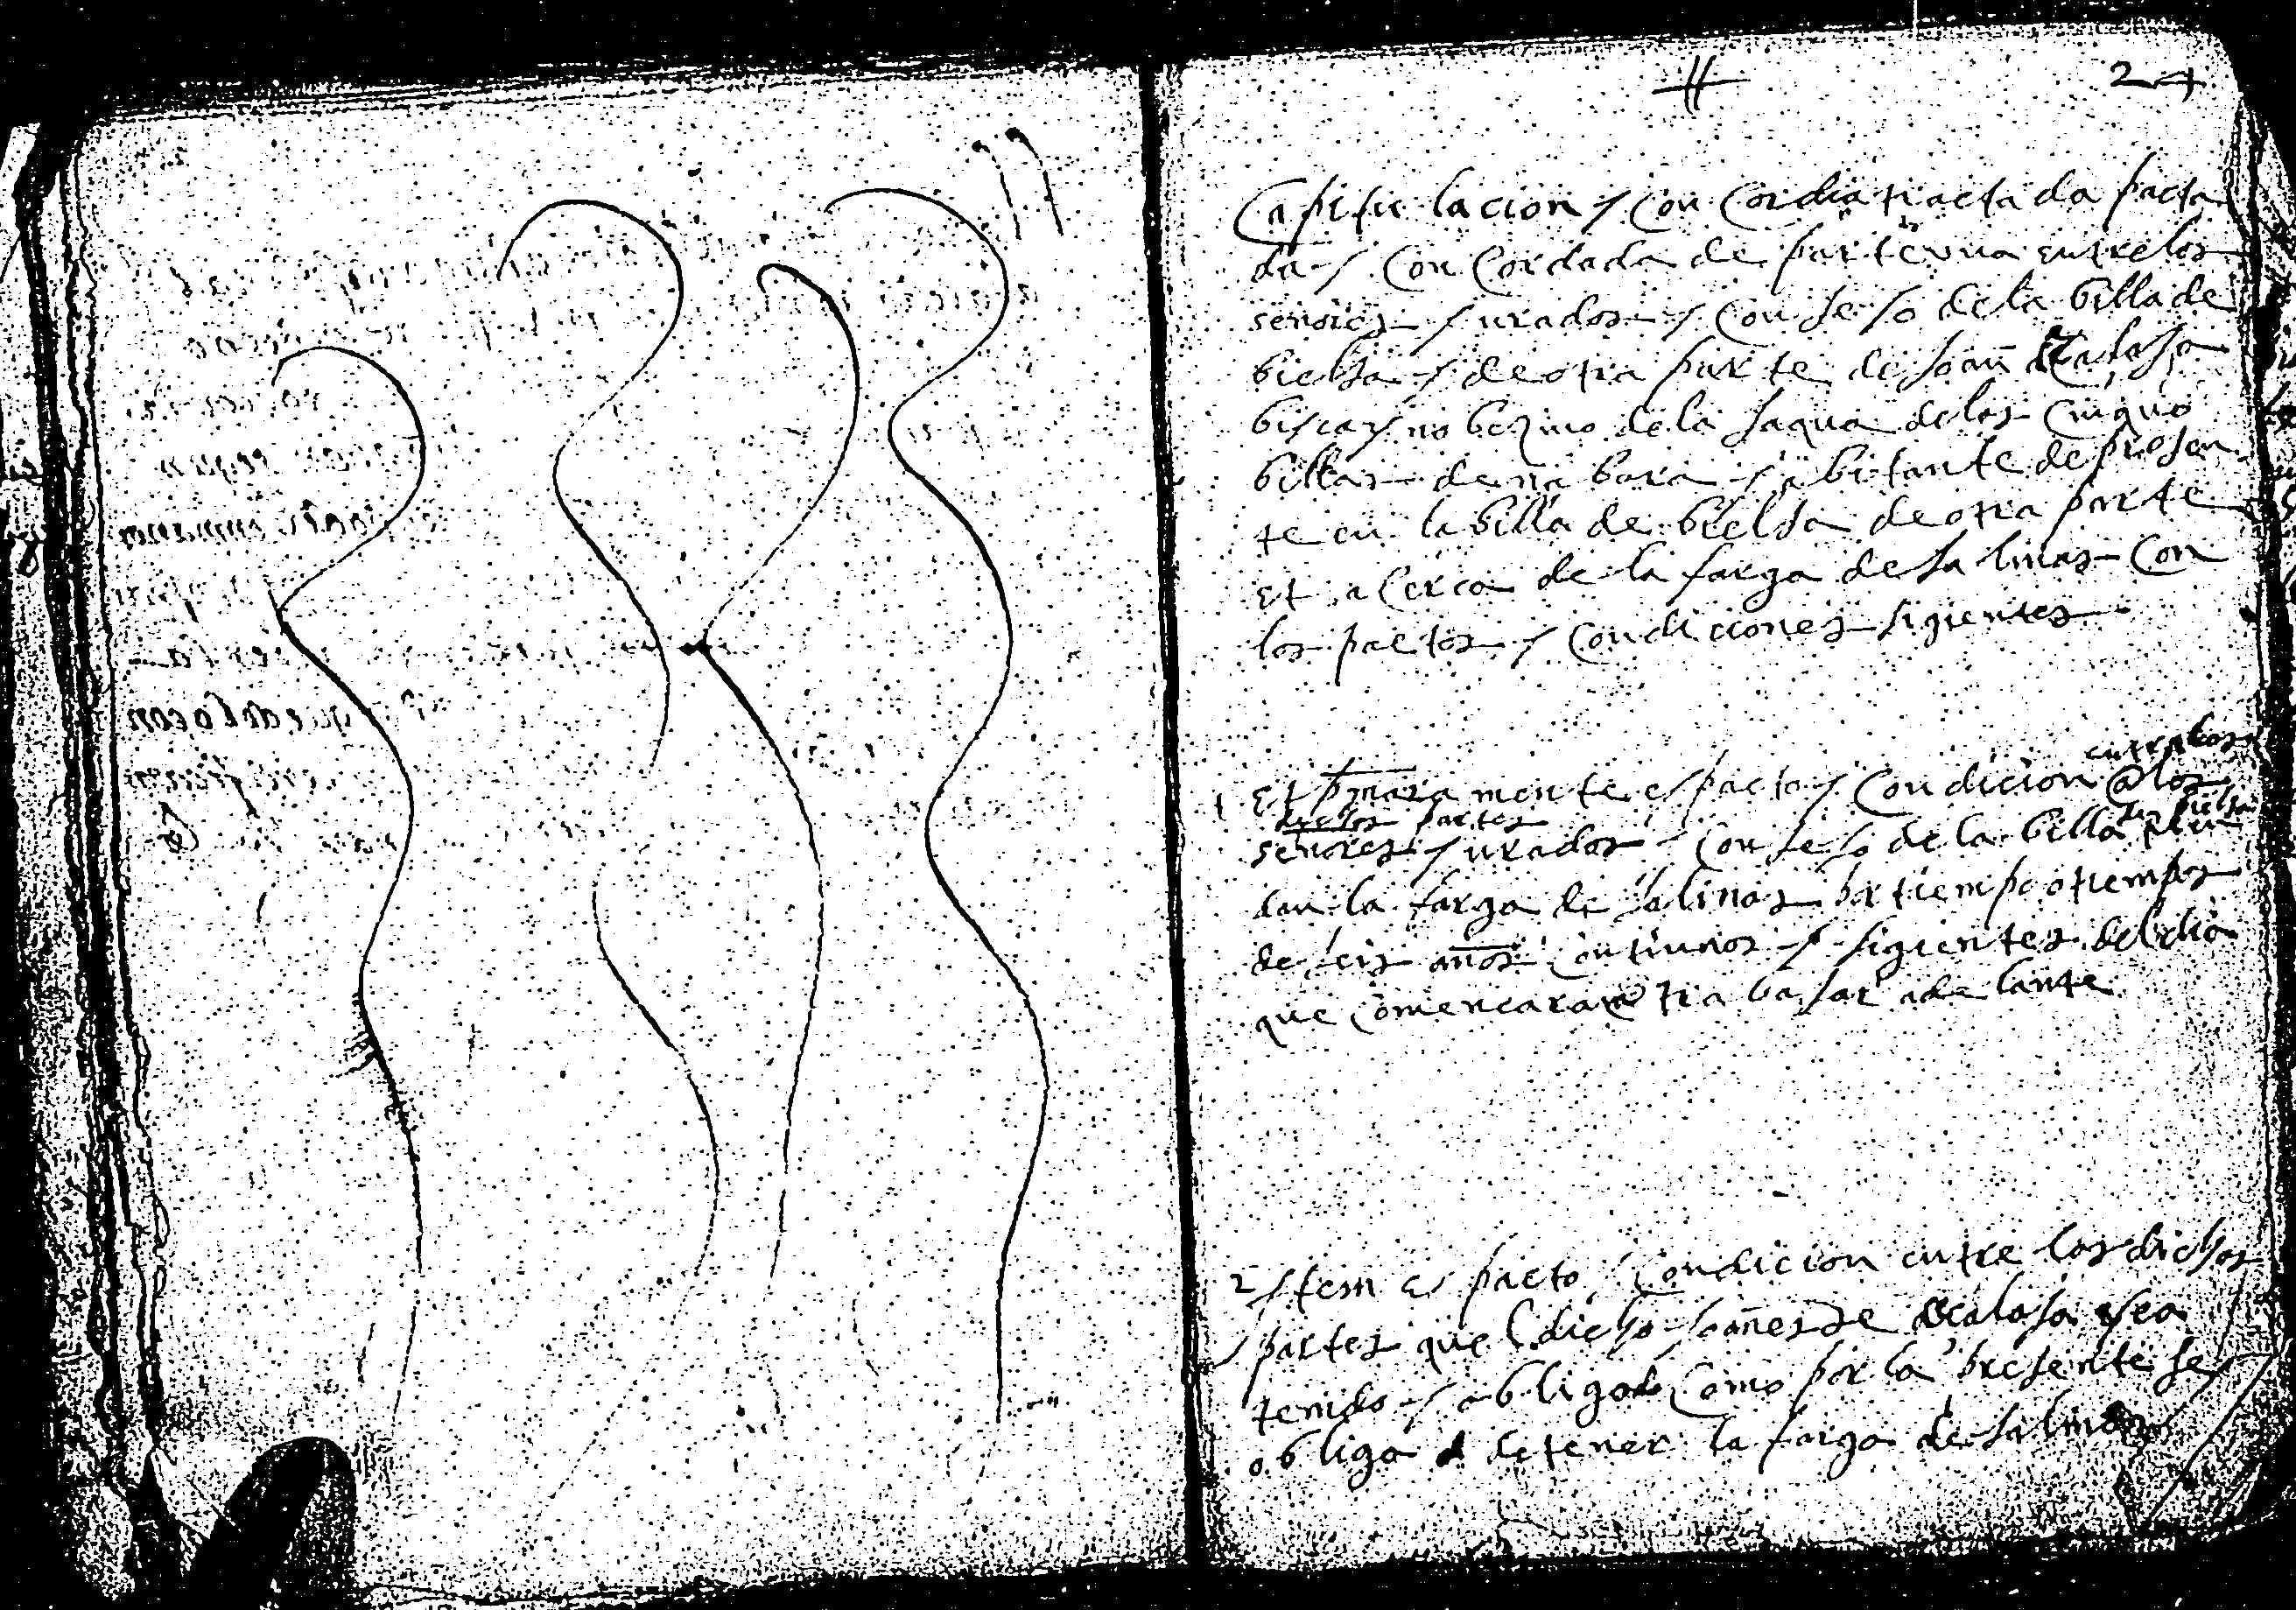 24
Capitulacion y Concordia tractada pacta
da y Concordada de parte una entre los
senores jurados y Consejo de la billa de
bielsa y de otra parte de Joan de Calosa
biscayno bezino de la saqua de las Cinquo
billas de nabara y abitante de presen
te en la billa de bielsa de otra parte
Et acerca de la farga de salinas Con
los pactos y Condiciones sigientes
entre las
1 Et primeramente es pacto y Condicion @ los
dichos partes
de bielsa
senores jurados y Consejo de la billa
dan la farga de salinas por tiempo o tiempos
de seis años Continuos y sigientes del dia
que Comencaran a trabajar adelante
2 Item es pacto y Condicion entre los dichos
partes que el dicho Joanes de Calosa sea
tenido y obligado Como por la presente se
obliga de tener la farga de salinas